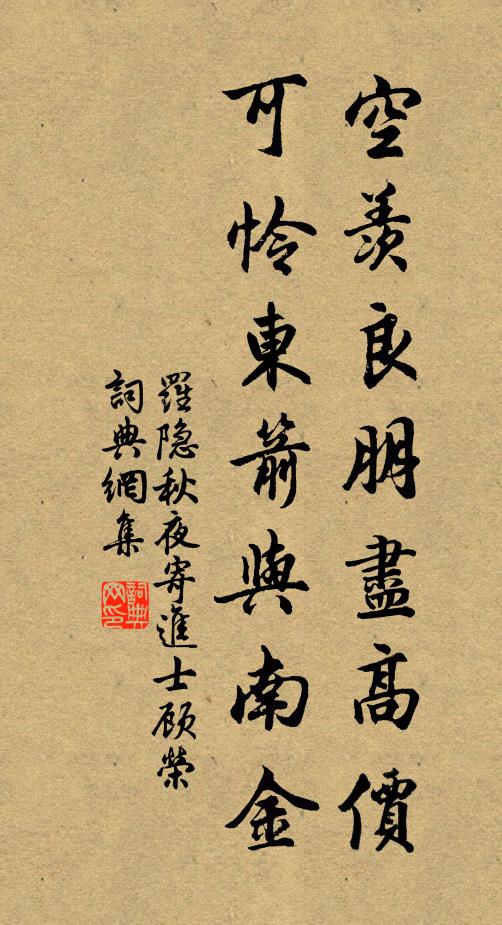 空羨良朋盡高價
可怜東箭與南金
羅隐秋夜寄進士顾榮
詞典網集
詞典网印